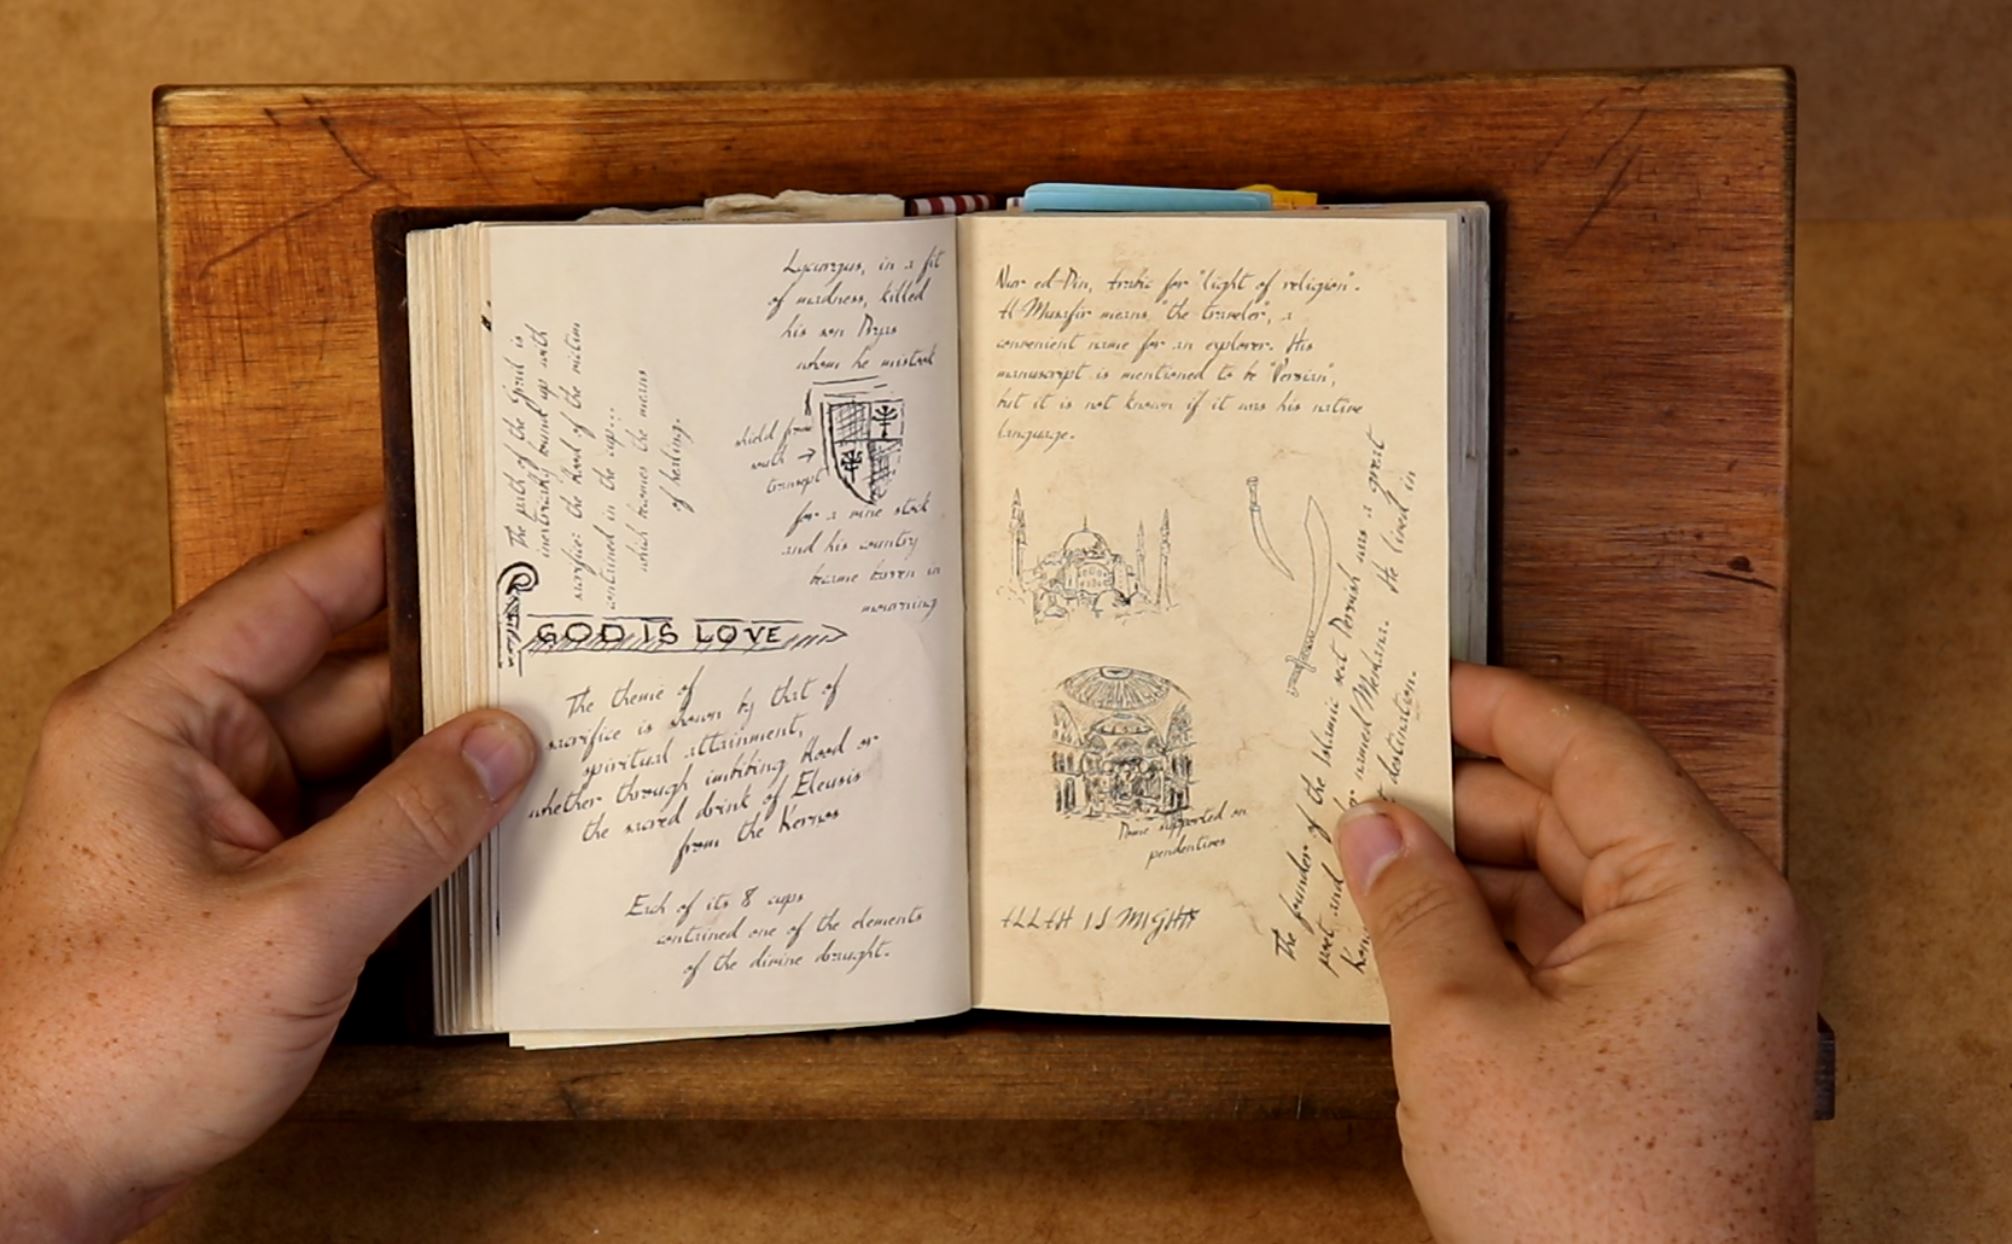 Lycurgus, in a fit
of madness, killed
his son Dryas
whom he mistook
shield from
south
transept
for a vine stock
and his country
became barren in
mourning
The path of the Grail is
inextricably bound up with
sacrifice: the blood of the victim
contained in the cup...
which becomes the means
of healing.
GOD IS LOVE
The theme of
sacrifice is shown by that of
spiritual attainment,
whether through imbibing blood or
the sacred drink of Eleusis
from the Kernos
Each of its 8 cups
contained one of the elements
of the divine draught.
Nur ed-Din, Arabic for "light of religion".
Al Musafir means "the traveler", a
convenient name for an explorer. His
manuscript is mentioned to be "Persian",
but it is not known if it was his native
language.
Dome supported on
pendentives
ALLAH IS MIGHTY
The founder of the Islamic sect Dervish was a great
poet and named Mevlana. He lived in
destination.